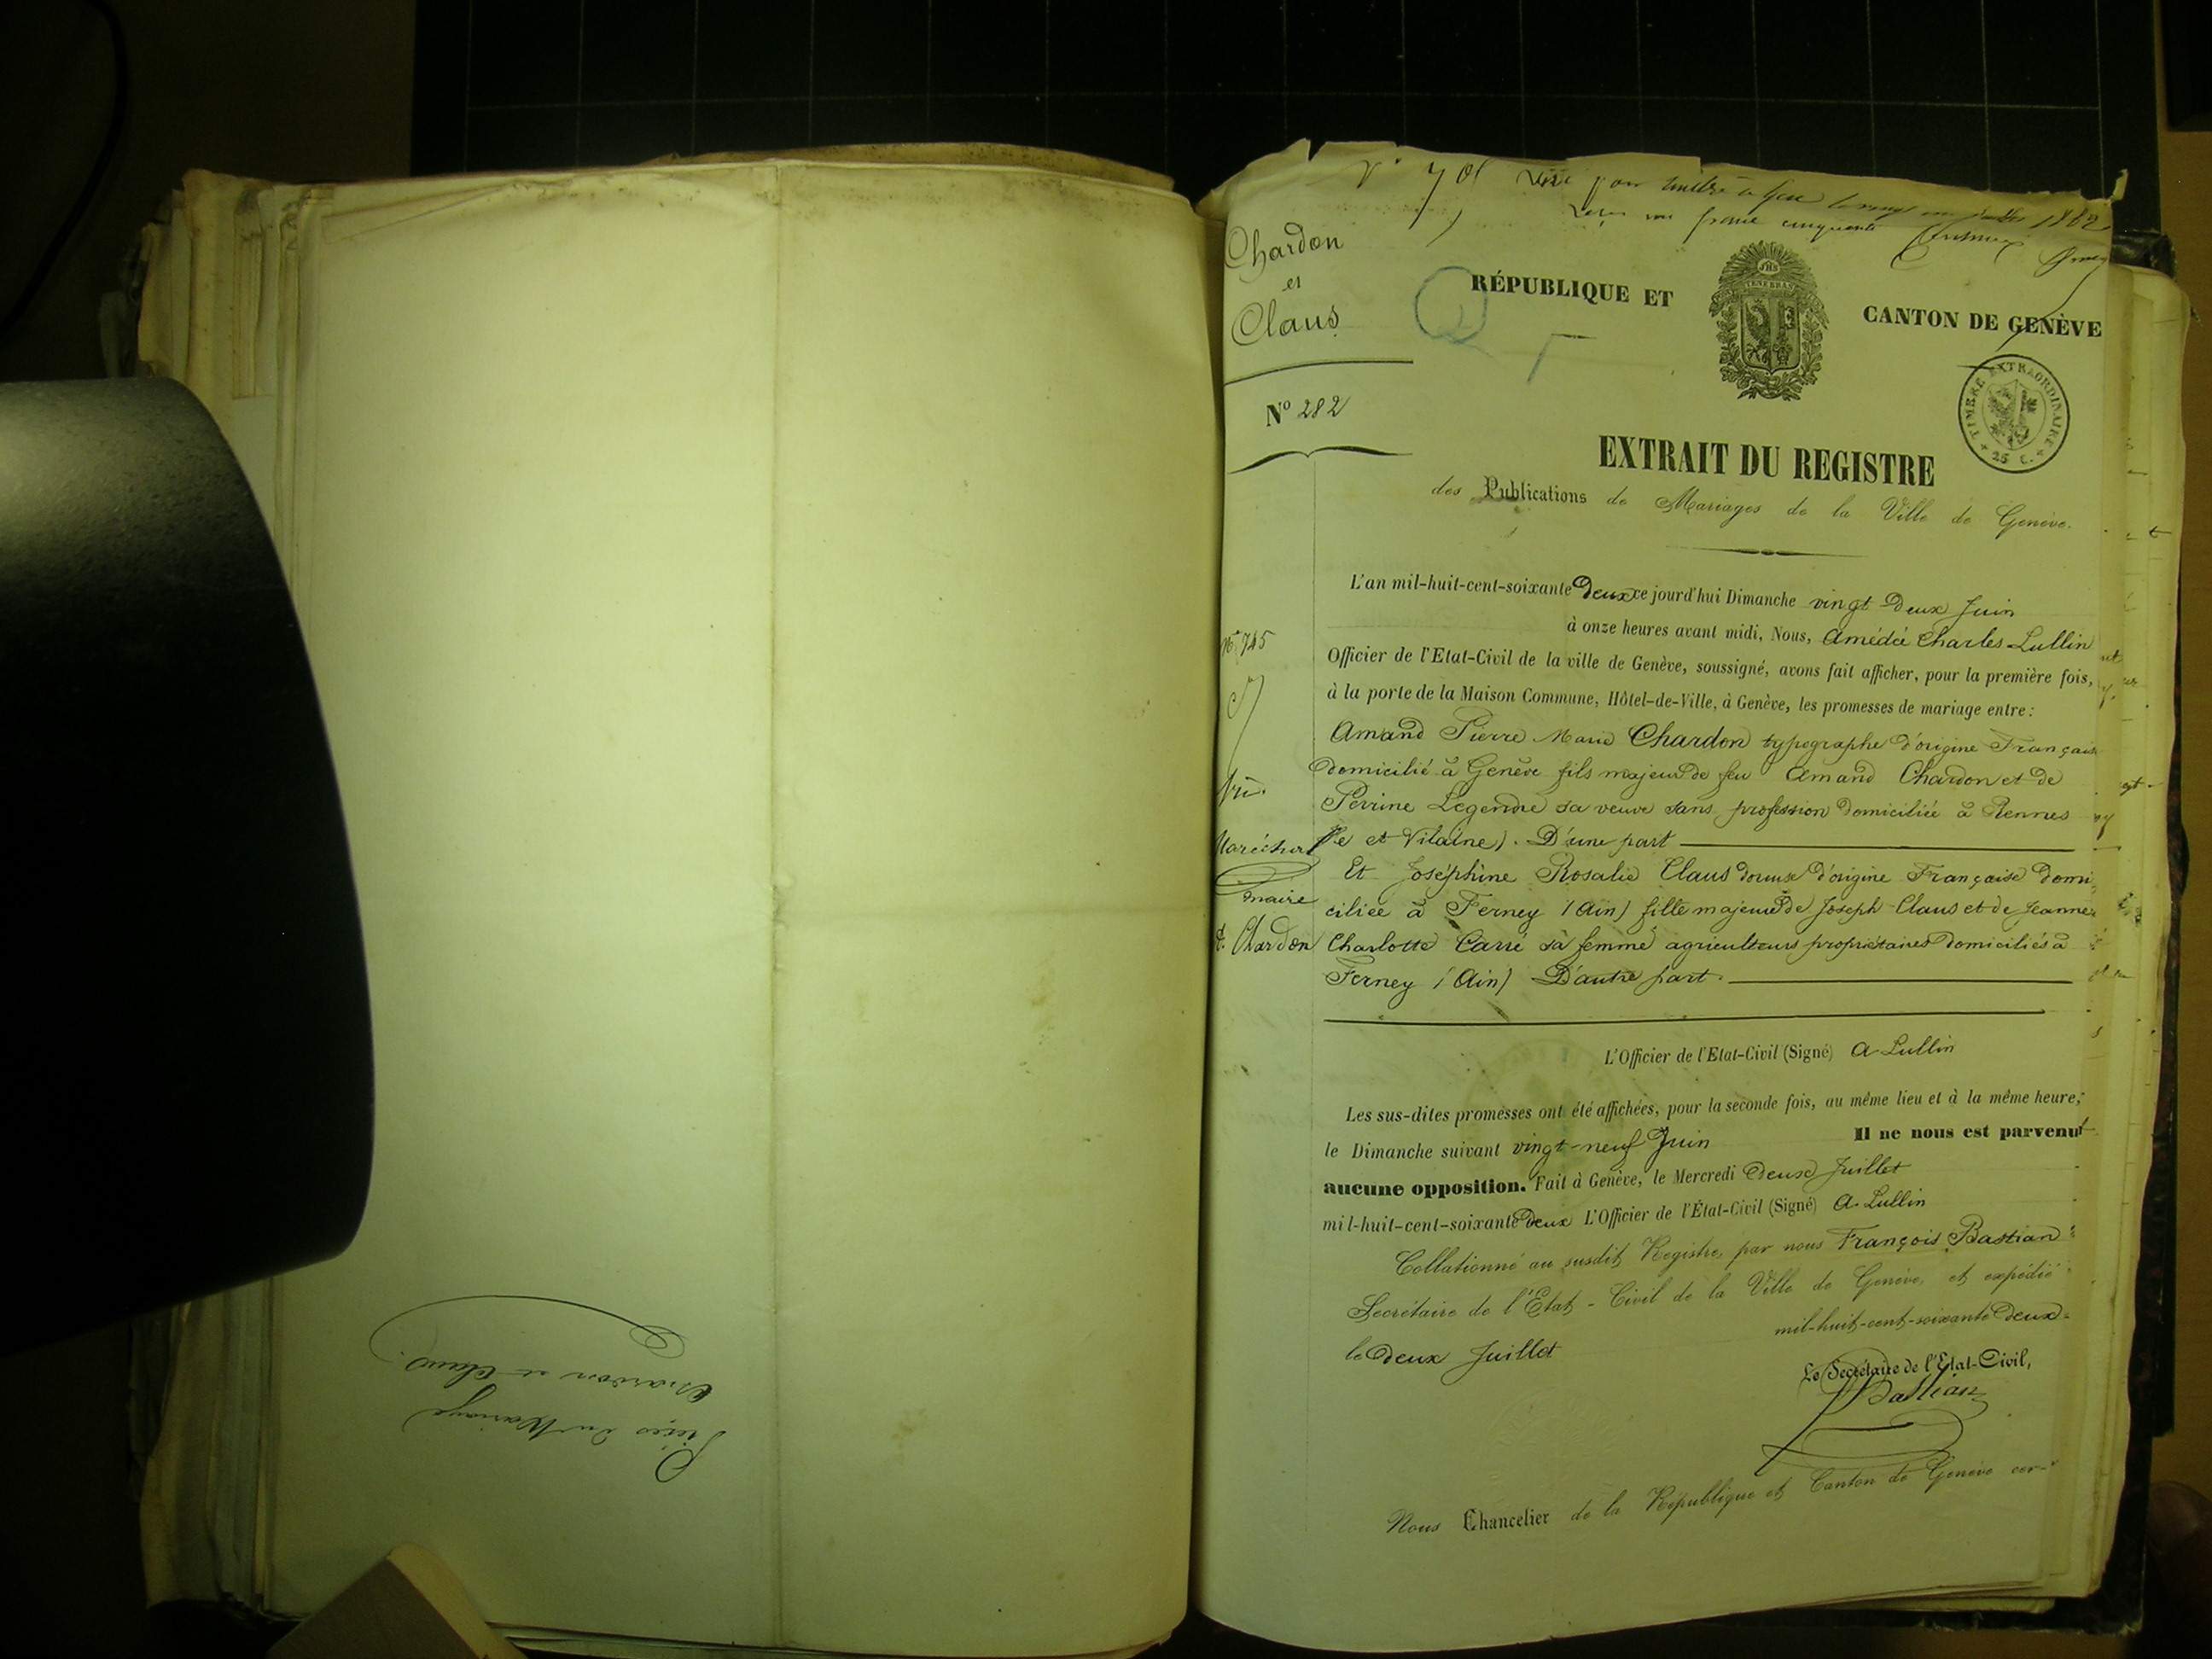 Pièces du Mariage
Chardon et Claus.
N° 701 Visé pour timbre à 1862
un franc cinquante centimes
Chardon
et
Claus
N° 282
RÉPUBLIQUE ET CANTON DE GENÈVE
JHS
TENEBRAS
TIMBRE EXTRAORDINAIRE
25 C.
EXTRAIT DU REGISTRE
des Publications de Mariages de la Ville de Genève.
L'an mil-huit-cent-soixante Deux ce jourd'hui Dimanche vingt Deux Juin
à onze heures avant midi, Nous, Amédée Charles Lullin
Officier de l'Etat-Civil de la ville de Genève, soussigné, avons fait afficher, pour la première fois,
à la porte de la Maison Commune, Hôtel-de-Ville, à Genève, les promesses de mariage entre:
Amand Pierre Marie Chardon typographe d'origine Française
Domicilié à Genève fils majeur de feu Amand Chardon et de
Perrine Legendre sa veuve sans profession Domiciliée à Rennes
et Vilaine). D'une part
Et Joséphine Rosalie Claus d'origine Française Domi-
ciliée à Ferney (Ain) fille majeure de Joseph Claus et de Jeanne
Charlotte Carré sa femme agriculteurs propriétaires Domiciliés à
Ferney (Ain) D'autre part.
N° 745
Maréchal
maire
Chardon
L'Officier de l'Etat-Civil (Signé) A Lullin
Les sus-dites promesses ont été affichées, pour la seconde fois, au même lieu et à la même heure,
le Dimanche suivant vingt-neuf Juin Il ne nous est parvenu
aucune opposition. Fait à Genève, le Mercredi Deux Juillet
mil-huit-cent-soixante Deux L'Officier de l'État-Civil (Signé) A. Lullin
Collationné au susdit Registre, par nous François Bastian
Secrétaire de l'Etat-Civil de la Ville de Genève, et expédié
le Deux Juillet mil-huit-cent-soixante Deux
Le Secrétaire de l'Etat-Civil,
Bastian
Nous Chancelier de la République et Canton de Genève cer-